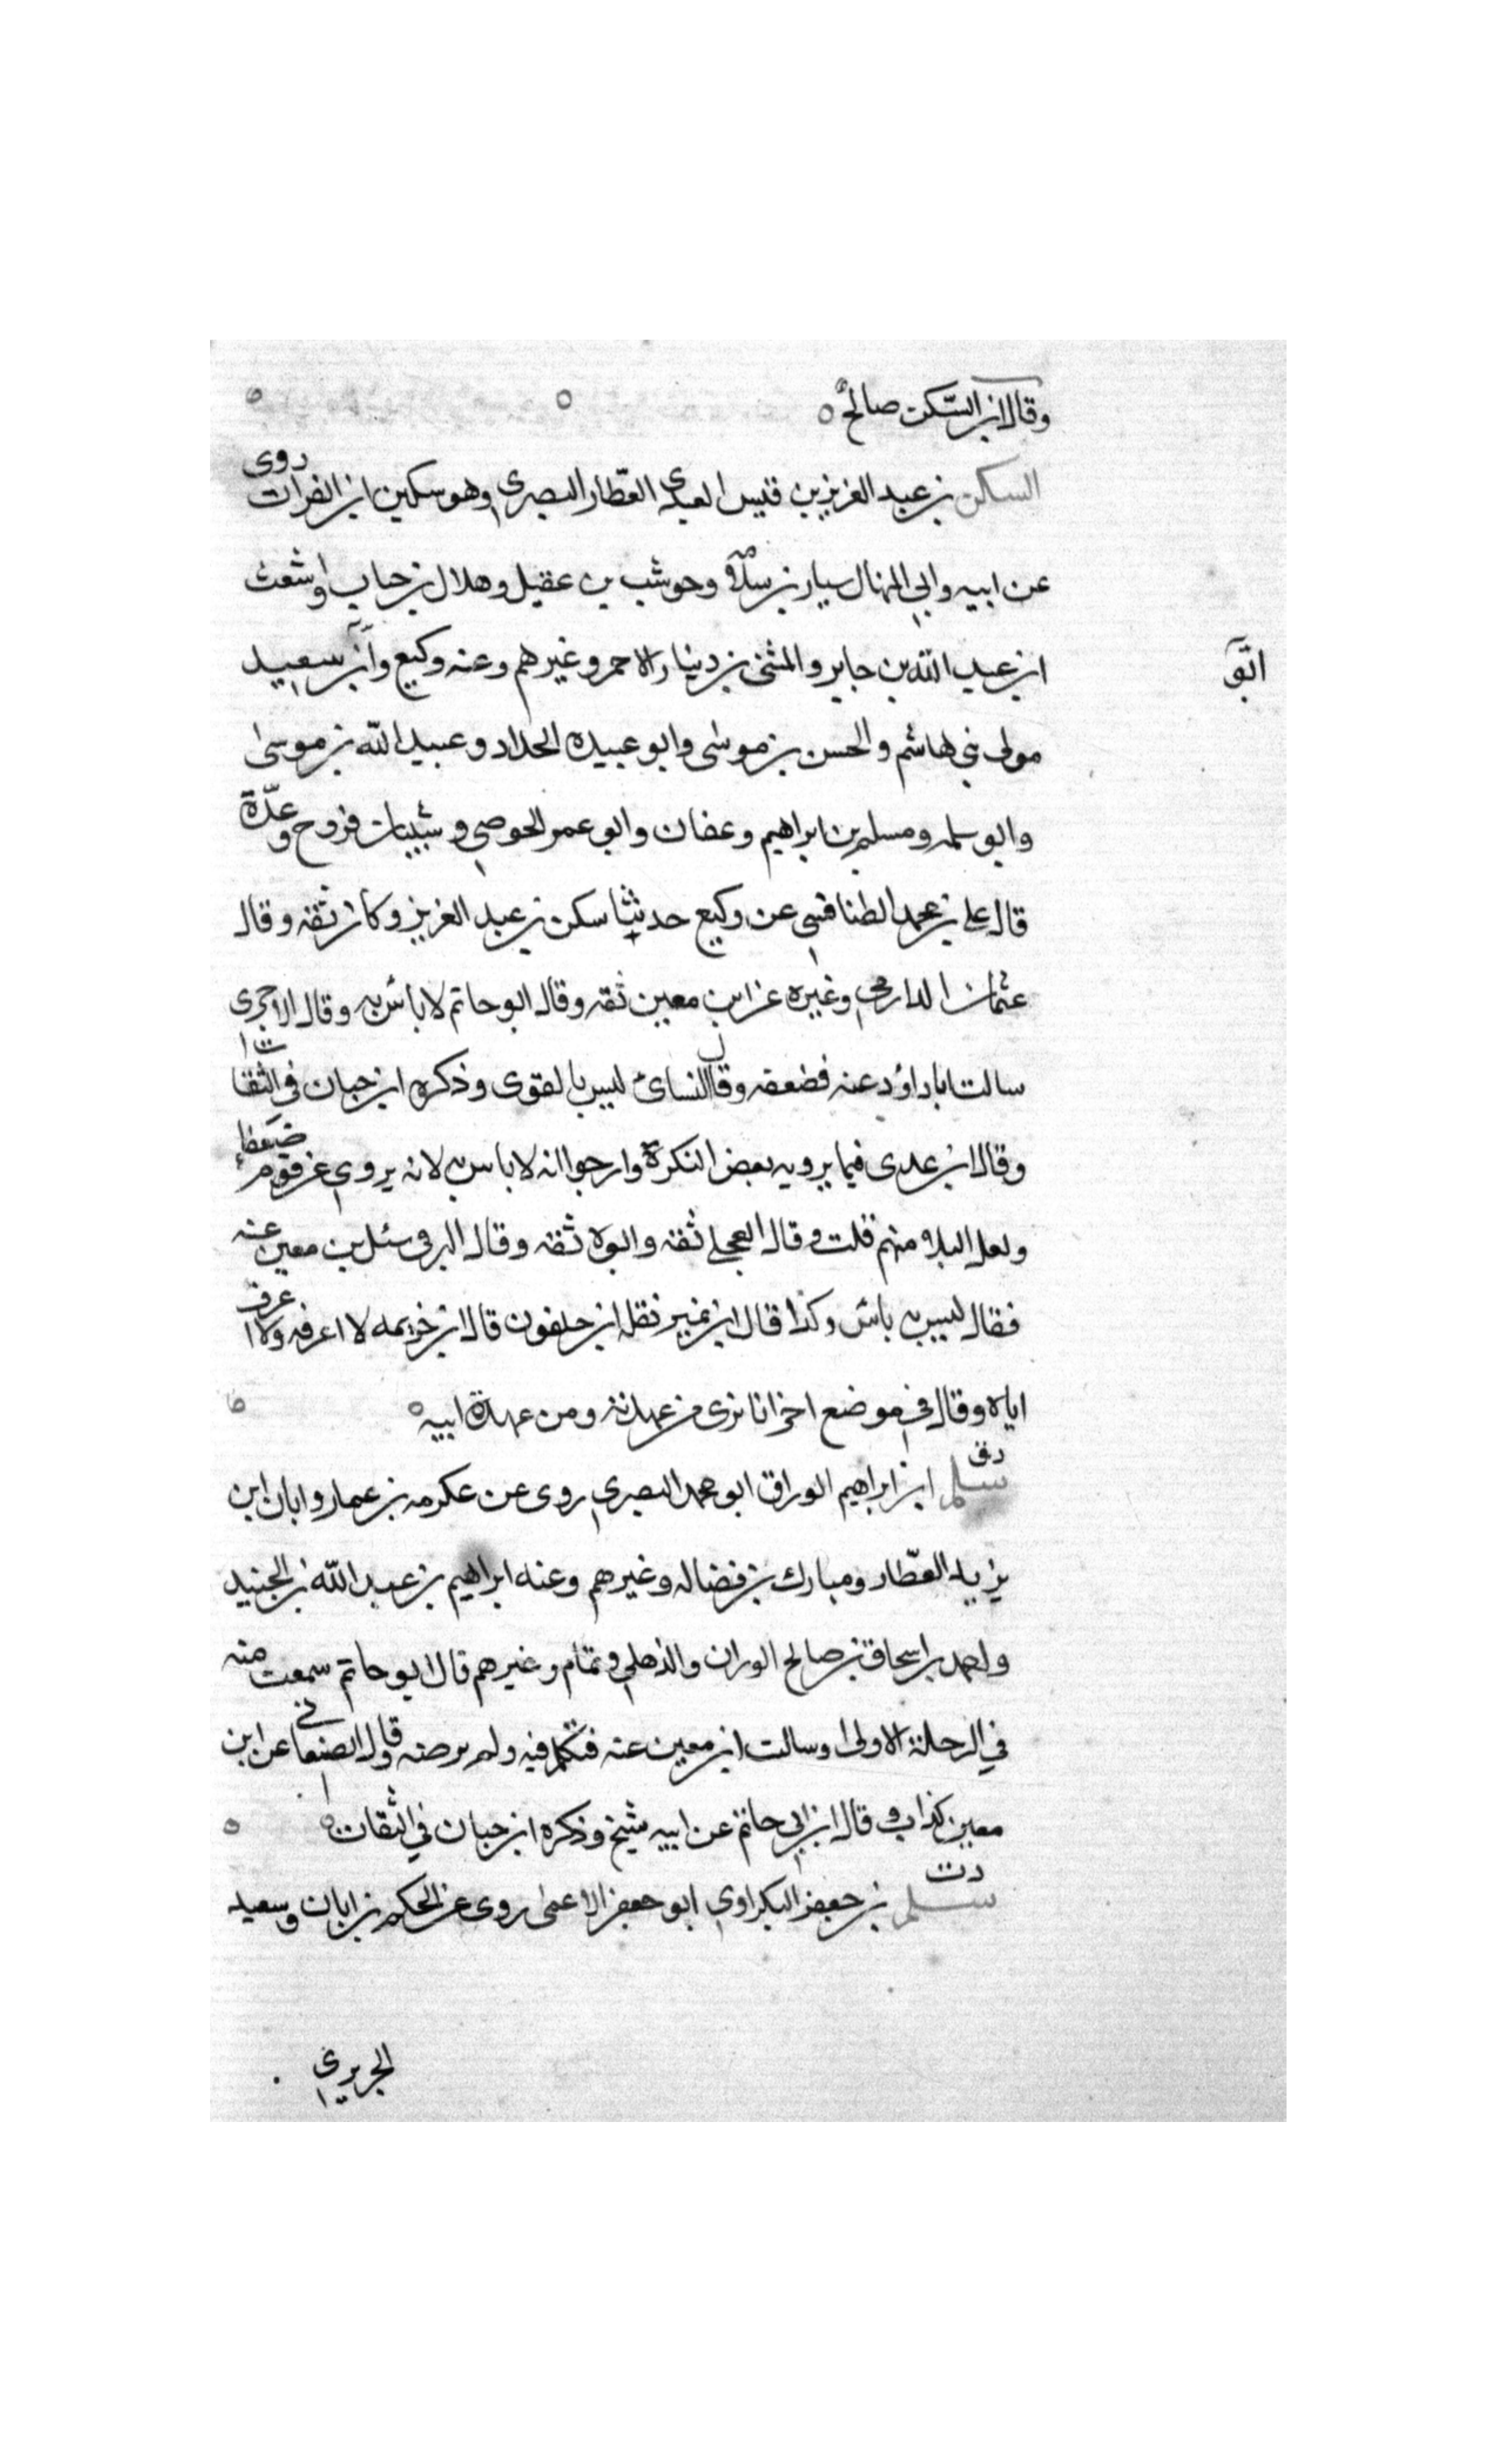 وقال ابن السكن صالح ه
السكن بن عبد العزيز بن قيس العبدى العطار البصري وهو سكين ابن الفرات روى
عن ابيه وابي المنهال سيار بن سلامه وحوشب بن عقيل وهلال بن حباب واشعث
ابن عبد الله بن جابر والمثنى بن دينار الاحمر وغيرهم وعنه وكيع وابو سعيد
ابو
مولى بني هاشم والحسن بن موسى وابو عبيده الحداد وعبيد الله بن موسى
وابو سلمه ومسلم بن ابراهيم وعفان وابو عمر الحوضي وشيبان بن فروح وعدة
قال علي بن محمد الطنافسي عن وكيع حدثنا سكن بن عبد العزيز وكان ثقه وقال
عثمان الدارمي وغيره عن ابن معين ثقه وقال ابو حاتم لا بأس به وقال الاجرى
سالت ابا داؤد عنه فضعفه وقال النسائ ليس بالقوى وذكره ابن حبان في الثقات
وقال ابن عدى فيما يرويه بعض النكرة وارجوا انه لا باس به لانه يروي عن قوم ضعفاء
ولعل البلاء منهم قلت وقال العجلي ثقه وابوه ثقه وقال البرقي سئل بن معين عنه
فقال ليس به باس وكذا قال ابن نمير نقله ابن خلفون قال ابن خزيمه لا اعرفه ولا اعرف
اباه وقال في موضع اخر انا نبرى من عهدته ومن عهدة ابيه ه
دق
سلم ابن ابراهيم الوراق ابو محمد البصري روى عن عكرمه بن عمار وابان ابن
يزيد العطار ومبارك بن فضاله وغيرهم وعنه ابراهيم بن عبد الله بن الجنيد
واحمد بن اسحاق بن صالح الوزان والذهلي وتمام وغيرهم قال ابو حاتم سمعت منه
في الرحلة الاولى وسالت ابن معين عنه فتكلم فيه ولم يرضه وقال الصنعاني عن ابن
معين كذاب وقال ابن ابي حاتم عن ابيه شيخ وذكره ابن حبان في الثقات ه
دت
سلم بن جعفر البكراوي ابو جعفر الاعمى روى عن الحكم بن ابان وسعيد
الجريري